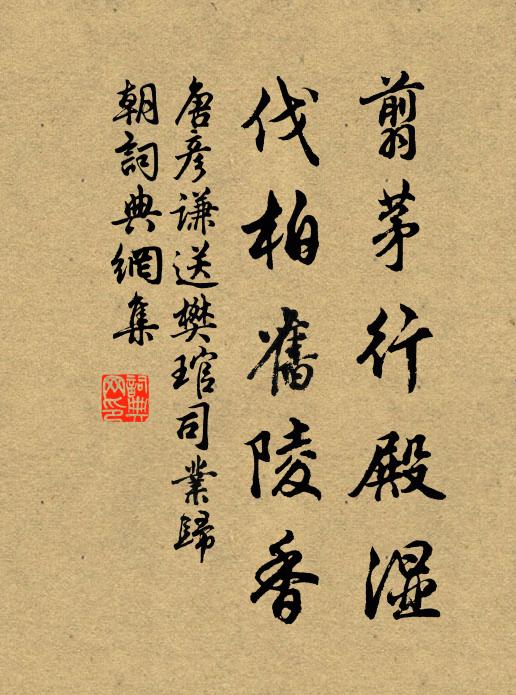 翦茅行殿湿
伐柏舊陵香
唐彦謙送樊琯司業歸
朝詞典網集
詞典網印